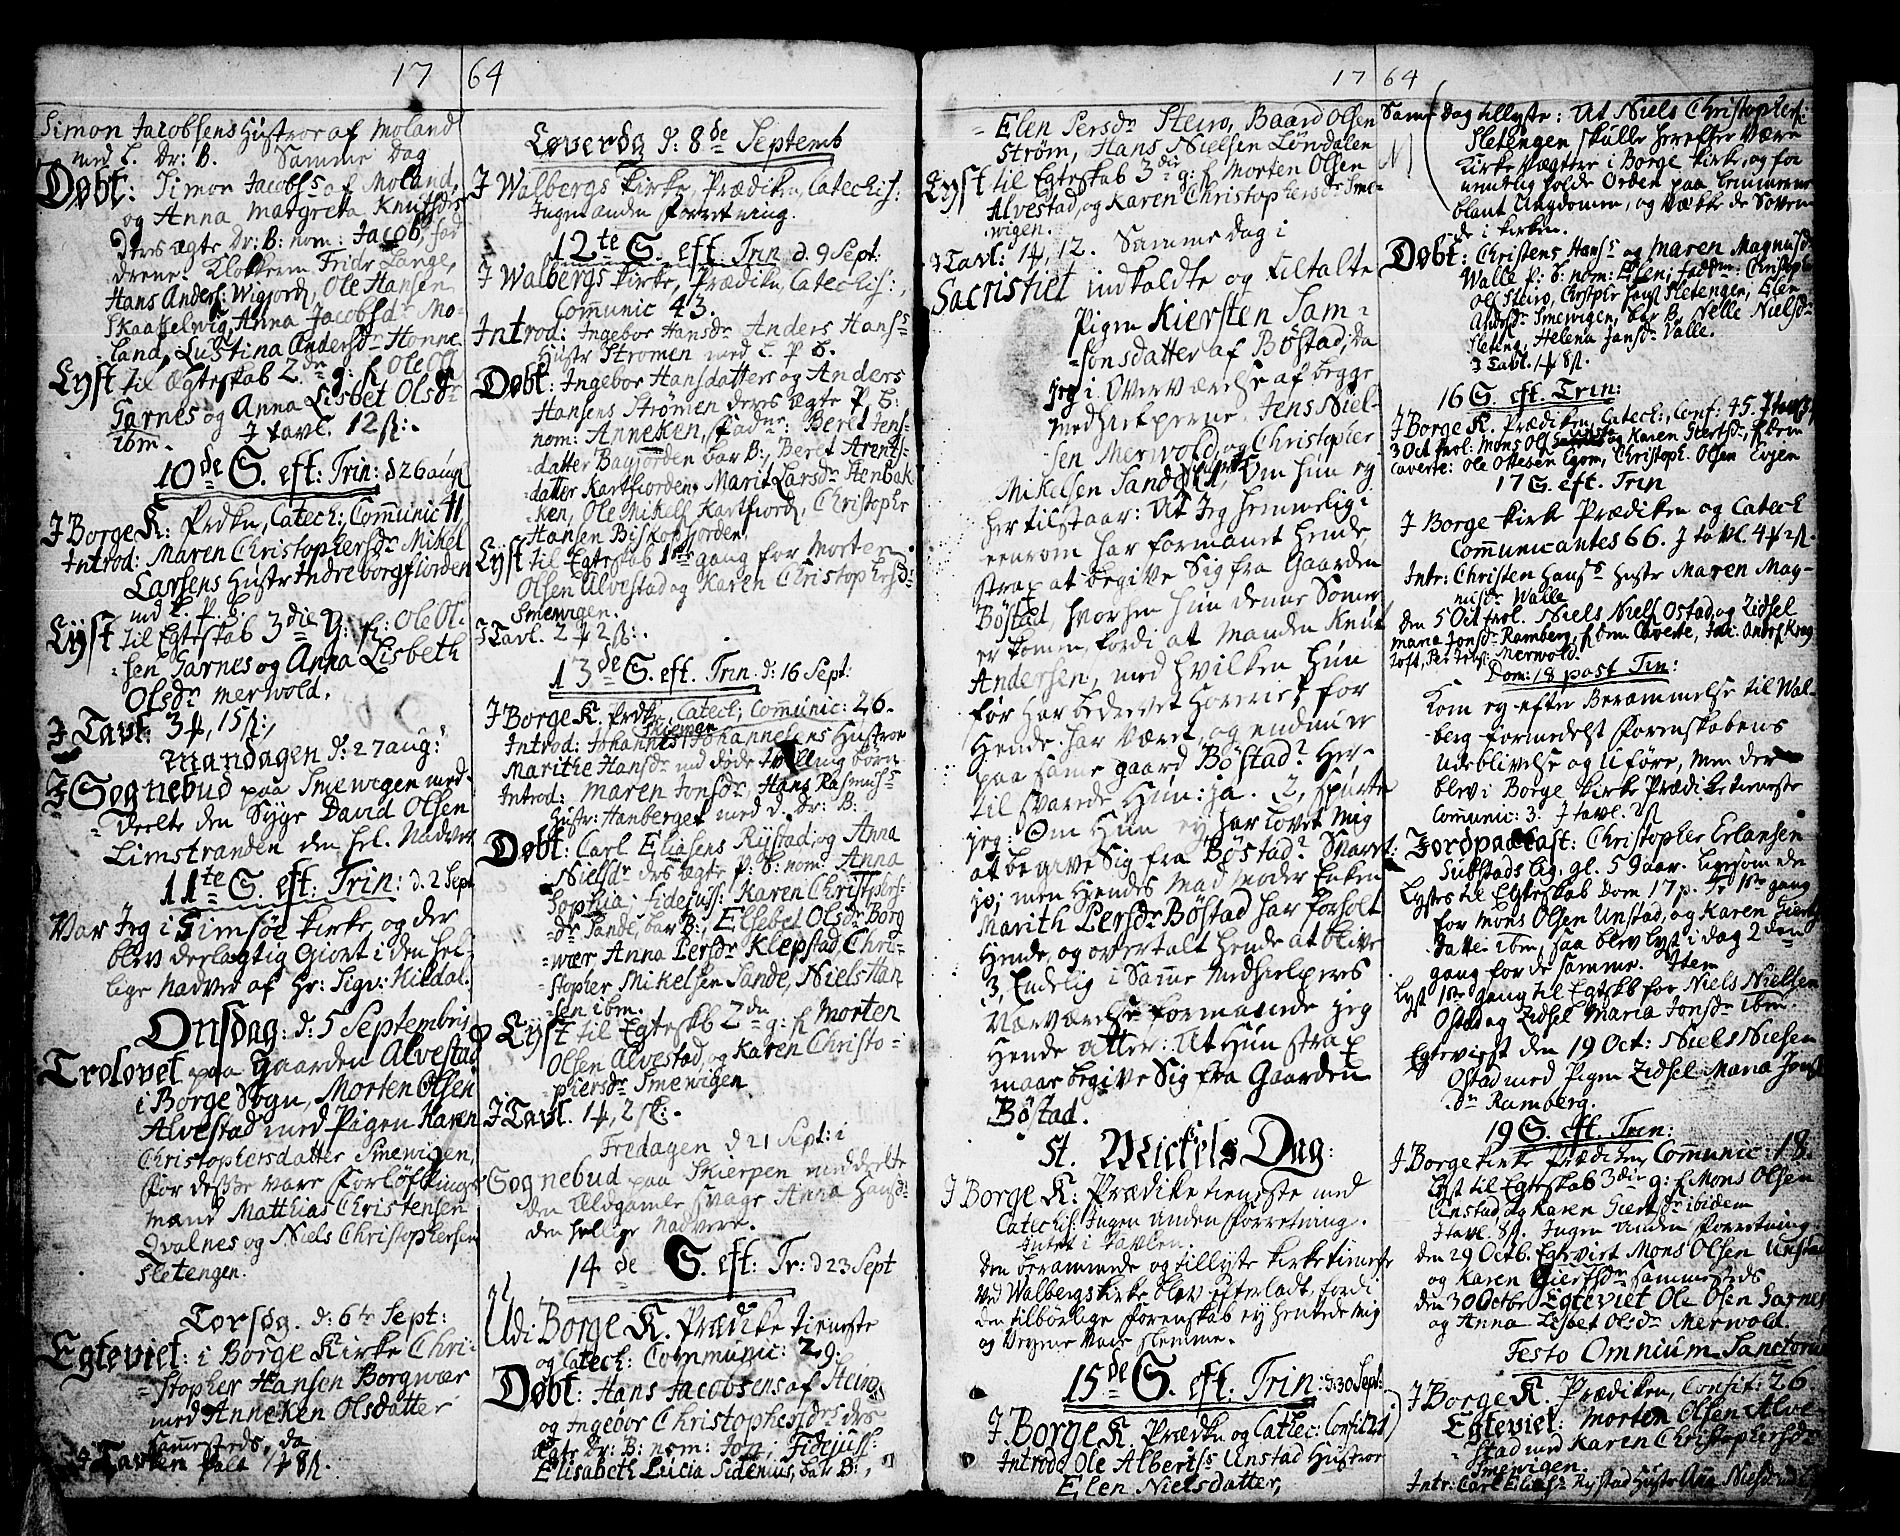 17 64
Simon Jacobsens Hustroe af Moland
med l. Dr: B. Samme Dag
Døbt: Simon Jacobs: af Moland,
og Anna Margreta Knutsdr
Ders ægte Dr: B: nom: Jacob, fad
drene: Klokkern Fridr Lange,
Hans Anders: Wigjord, Ole Hansen
Skaaffelwig, Anna Jacobsdr Mo-
land, Lustina Andersdr Honne.
Lyst til Egteskab 2den g: f Ole Ols:
Garnes og Anna Lisbet Olsdr
ibm. J tavl. 12ß:.
10de S. eft: Trin: d 26 aug
J Borge K: Prdkn, Catech; Comunic 11
Introd: Maren Christophersdr Mikel
Larsens Hustr Indreborgfiorden
md l. P. B.
Lyst til Egteskab 3die g: f: Ole Ol-
sen Garnes og Anna Lisbeth
Olsdr Merwold.
J Tavl: 3 ⅌, 15ß:,
Mandagen d: 27 aug:
J Sognebud paa Smewigen med-
deelte den Syge David Olsen
Limstranden den hel. Nadver.
11te S. eft: Trin: d. 2 Sept
Var Jeg i Gimsøe kirke, og der
blev deelagtig Giort i den hel-
lige Nadver af Hr: Sigv: Hildal.
Onsdag: d: 5 Septembris
Trolovet paa Gaarden Alvestad
i Borge Sogn, Morten Olsen
Alvestad med Pigen Karen
Christophersdatter Smewigen,
for desse vare Forløftnings
mænd Matthias Christensen
Qvalnes og Niels Christophersen
Sletengen.
Torsdg. d: 6te Sept:
Egteviet: i Borge Kirke Chri-
stopher Hansen Borgwær
med Anneken Olsdatter
sammesteds, da
J Tavlen falt 1 ⅌ 8ß.
Løverdg d: 8de Septemb
J Walbergs Kirke, Prædiken, Catechis:
Ingen anden Forretning.
12te S. eft. Trin d. 9 Sept:
J Walbergs Kirke, Prædikn, Catechis:,
Comunic 43.
Introd: Ingebor Hansdr Anders Hans:
Hustr Strømen med l. P B.
Døbt: Ingebor Hansdatters og Anders
Hansens Strømen deres ægte P. B:
nom: Anneken, Fadne: Beret Jens-
datter Bagjorden bar B:, Beret Arents-
datter Kartfiorden, Marit Larsdr Stenbak-
ken, Ole Mikels Kartfiord, Christopher
Hansen Biskopfjorden,
Lyst til Egteskab 1ste gang for Morten
Olsen Alvestad og Karen Christophersdr
Smewigen.
J Tavl. 2 ⅌ 2ß:.
13de S. eft. Trin. d: 16 Sept:
J Borge K. Prdkn, Catech; Comunic: 26.
Smewgn
Introd: Johannes Johannesens Hustroe
Marithe Hansdr md døde tvilling børn
Introd: Maren Jonsdr Hans Rasmuss:
Hustr: Hanberget med d. Dr: B:
Døbt: Carl Eliasens Rystad, og Anna
Nielsdr ders ægte P: B: nom: Anna
Sophia: Fidejuss: Karen Christophers:
dr Sande, bar B:, Elsebet Olsdr Borg
wær Anna Persdr Klepstad Chri-
stopher Mikelsen Sande, Niels Han-
sen ibm.
Lyst til Egteskb 2den g: f Morten
Olsen Alvestad, og Karen Christo-
phersdr Smewigen
J Tavl. 1 ⅌, 2ß:.
Fredagen d 21 Sept: i
Sognebud paa Skierpen meddeelte
den Ældgamle Svage Anna Hansdr
den hellige Nadvere.
14de S. eft: Tr: d 23 Sept
Udi Borge K. Prædike tieneste
og Catech: Communic: 29.
Døbt: Hans Jacobsens af Steiro
og Ingebor Christophersdrs ders
ægte Dr: B: nom: Jon; Fidejuss:
Elisabeth Lucia Sidenius, bar B:,
17 64
Elen Persdr Steiro, Baard Olsen
Strøm, Hans Nielsen Løndalen
Lyst til Egteskab 3die g: f Morten Olsen
Alvestad, og Karen Christophersdr Sme-
wigen.
J Tavl: 1 ⅌, 12. Samme dag i
Sacristiet indkaldte og tiltalte
Pigen Kiersten Sam-
sonsdatter af Bøstad, da
jeg i Overværelse af begge
Medhielperne Jens Niel-
sen Merwold, og Christopher
Mikelsen Sand 1, Om hun ey
her tilstaar: At Jeg hemmelig i
eenrom har formanet hende
strax at begive Sig fra Gaarden
Bøstad, hvorhen hun denne Somer
er komen, fordi at Manden Knut
Andersen, med hvilken hun
før har bedrevet Horerie, for
Hende har været, og endnu er
paa samme gaard Bøstad? Her-
til svarede Hun: ja. 2, spurte
jeg: Om Hun ey har lovet mig
at begive Sig fra Bøstad? Svaret:
jo; men Hendes Madmoder Enken
Marith Persdr Bøstad har forholt
Hende, og overtalt hende at blive
3, Endelig i Samme Medhielpers
Nærværelse formaende jeg
Hende atter: At Hun strax
maae begive Sig fra Gaarden
Bøstad.
St. Mickels Dag:
J Borge K: Prædike tieneste med
Catechis: Ingen anden Forretning.
Intet i tavlen.
Den berammede og tillyste kirketieneste
ved Walbergs kirke blev efterladt, fordi
den tilbørlige Forenskab ey hentede mig
og Veyrne vare slemme.
15de S. eft. Trin: d: 30 Sept:
J Borge K Prædkn og Catec: Confit 21
Introd: Ole Alberts: Unstad Hustroe
Elen Nielsdatter,
Same Dag tillyste: At Niels Christophers:
Sletengen skulle herefter være
Kirke Vægter i Borge kirke, og for
nemlig holde Orden paa lemmerne
blant Ungdomen, og vække de Soven-
de i kirken.
Døbt: Christens Hans: og Maren Magnusdr
Walle P: B: nom: Elsen; faddrn: Christoph
Ols Steiro, Chrstpher Hans Sletengen, Elen
Andrsdr Smewigen, bar B, Nelle Nielsdr
Sleteng, Helena Jansdr Valle.
J Tavl. 1 ⅌ 8ß.
16 S. eft. Trin:
J Borge K. Prædiken, Catech:, Conf: 45.
3 Oct trol: Mons Ols Unsta og Karen Giertsdr, f dem
caverte: Ole Ottesen Egom, Christoph. Olsen Evjen
17 S. eft. Trin
J Borge Kirke Prædiken og Catech
Communicantes 66. J tavl. 4 ⅌ 2ß.
Intr: Christen Hans: Hustr Maren Mag-
nusdr Walle
den 5 Oct trol. Niels Niels Ostad og Zidsel
Maria Jonsdr Ramberg, f dem Caverte, Joh: Anders Krog
toft, Per Jens: Merwold.
Dom: 18 post Trin:
Kom ey efter Berammelse til Wal-
berg formedelst Forenskabens
Udeblivelse og Uføre, Men der
blev i Borge kirke Prædiketieneste
Communic: 3. J tavl. 8ß
Jordpaakast: Christopher Erlansen
Sukstads lig, gl. 59 aar. Ligesom de
Lystes til Egteskab Dom 17 p. Tr 1ste gang
for Mons Olsen Unstad, og Karen Giertsd
datter ibm, saa blev lyst i dag 2den
gang for de samme. Item
Lyst 1ste gang til Egteskb for Niels Nielsen
Ostad og Zidsel Maria Jonsdr ibm.
Egteviest den 19 Oct: Niels Nielsen
Ostad med Pigen Zidsel Maria Jons
dr Ramberg.
19 S. eft. Trin:
J Borge kirke Prædiken, Communic: 18.
Lyst til Egteskab 3die g: f Mons Olsen
Unstad og Karen Giertsdr ibidem
J tavl 8ß. Ingen anden Forretning
den 29 Octb. Egteviet Mons Olsen Unstad
og Karen Giertsdr sammesteds
den 30 Octbr Egteviet Ole Olsen Garnes
og Anna Lisbet Olsdr Merwold.
Festo Omnium Sanctorum
J Borge K. Prædiken, Confit: 26.
Egteviet: Morten Olsen Alve-
stad med Karen Christophersdr
Smewigen.
Intr: Carl Elias: Rystad Hustr Ana Nielsd